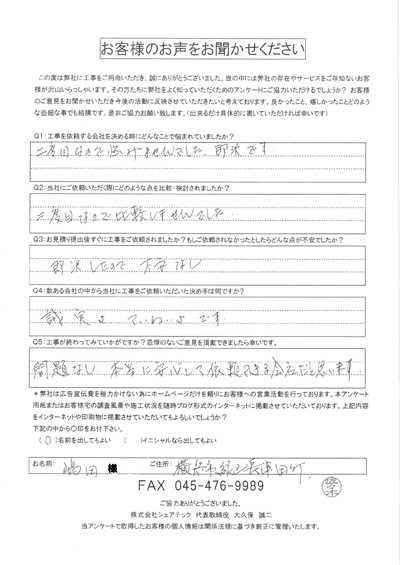 お客様のお声をお聞かせください
この度は弊社に工事をご用命いただき、誠にありがとうございました。世の中には弊社の存在やサービスをご存知ないお客
様が沢山いらっしゃいます。その方たちに弊社をよく知っていただくためのアンケートにご協力いただけるでしょうか？ お客様
のご意見をお聞かせいただき今後の活動に反映させていただきたいと考えております。良かったこと、嬉しかったことどのよう
な些細な事でも結構です、是非ご協力お願い致します。（出来るだけ具体的に書いていただければ幸いです）
Q1：工事を依頼する会社を決める時にどんなことで悩まれていましたか？
二度目なので悩みませんでした。即決です
Q2：当社にご依頼いただく際にどのような点を比較・検討されましたか？
二度目なので比較しませんでした
Q3：お見積り提出後すぐに工事をご依頼されましたか？もしご依頼されなかったとしたらどんな点が不安でしたか？
即決したので 不安なし
Q4：数ある会社の中から当社に工事をご依頼いただいた決め手は何ですか？
誠実さ ていねいさ です
Q5：工事が終わってみていかがですか？忌憚のないご意見を頂戴できましたら幸いです。
問題なし 本当に安心して依頼できる会社だと思います
＊弊社は広告宣伝費を極力かけない為にホームページだけを頼りにお客様への営業活動を行っております。本アンケート
用紙またはお客様宅の調査風景や施工状況を随時ブログ形式のインターネットに掲載させていただいております。上記内容
をインターネットや印刷物に掲載させていただいてもよろしいでしょうか？
下記の中から〇印をお付け下さい。
（〇）名前を出してもよい （ ）イニシャルなら出してもよい
お名前： 嶋田 様 ご住所： 横浜市緑区長津田町
FAX 045-476-9989
ご協力ありがとうございました。
株式会社シェアテック 代表取締役 大久保 誠二
当アンケートで取得したお客様の個人情報は関係法規に基づき厳正に管理いたします。